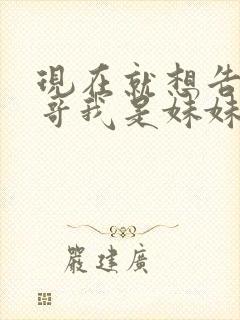 現在就想告
哥我是妹妹
嚴建廣